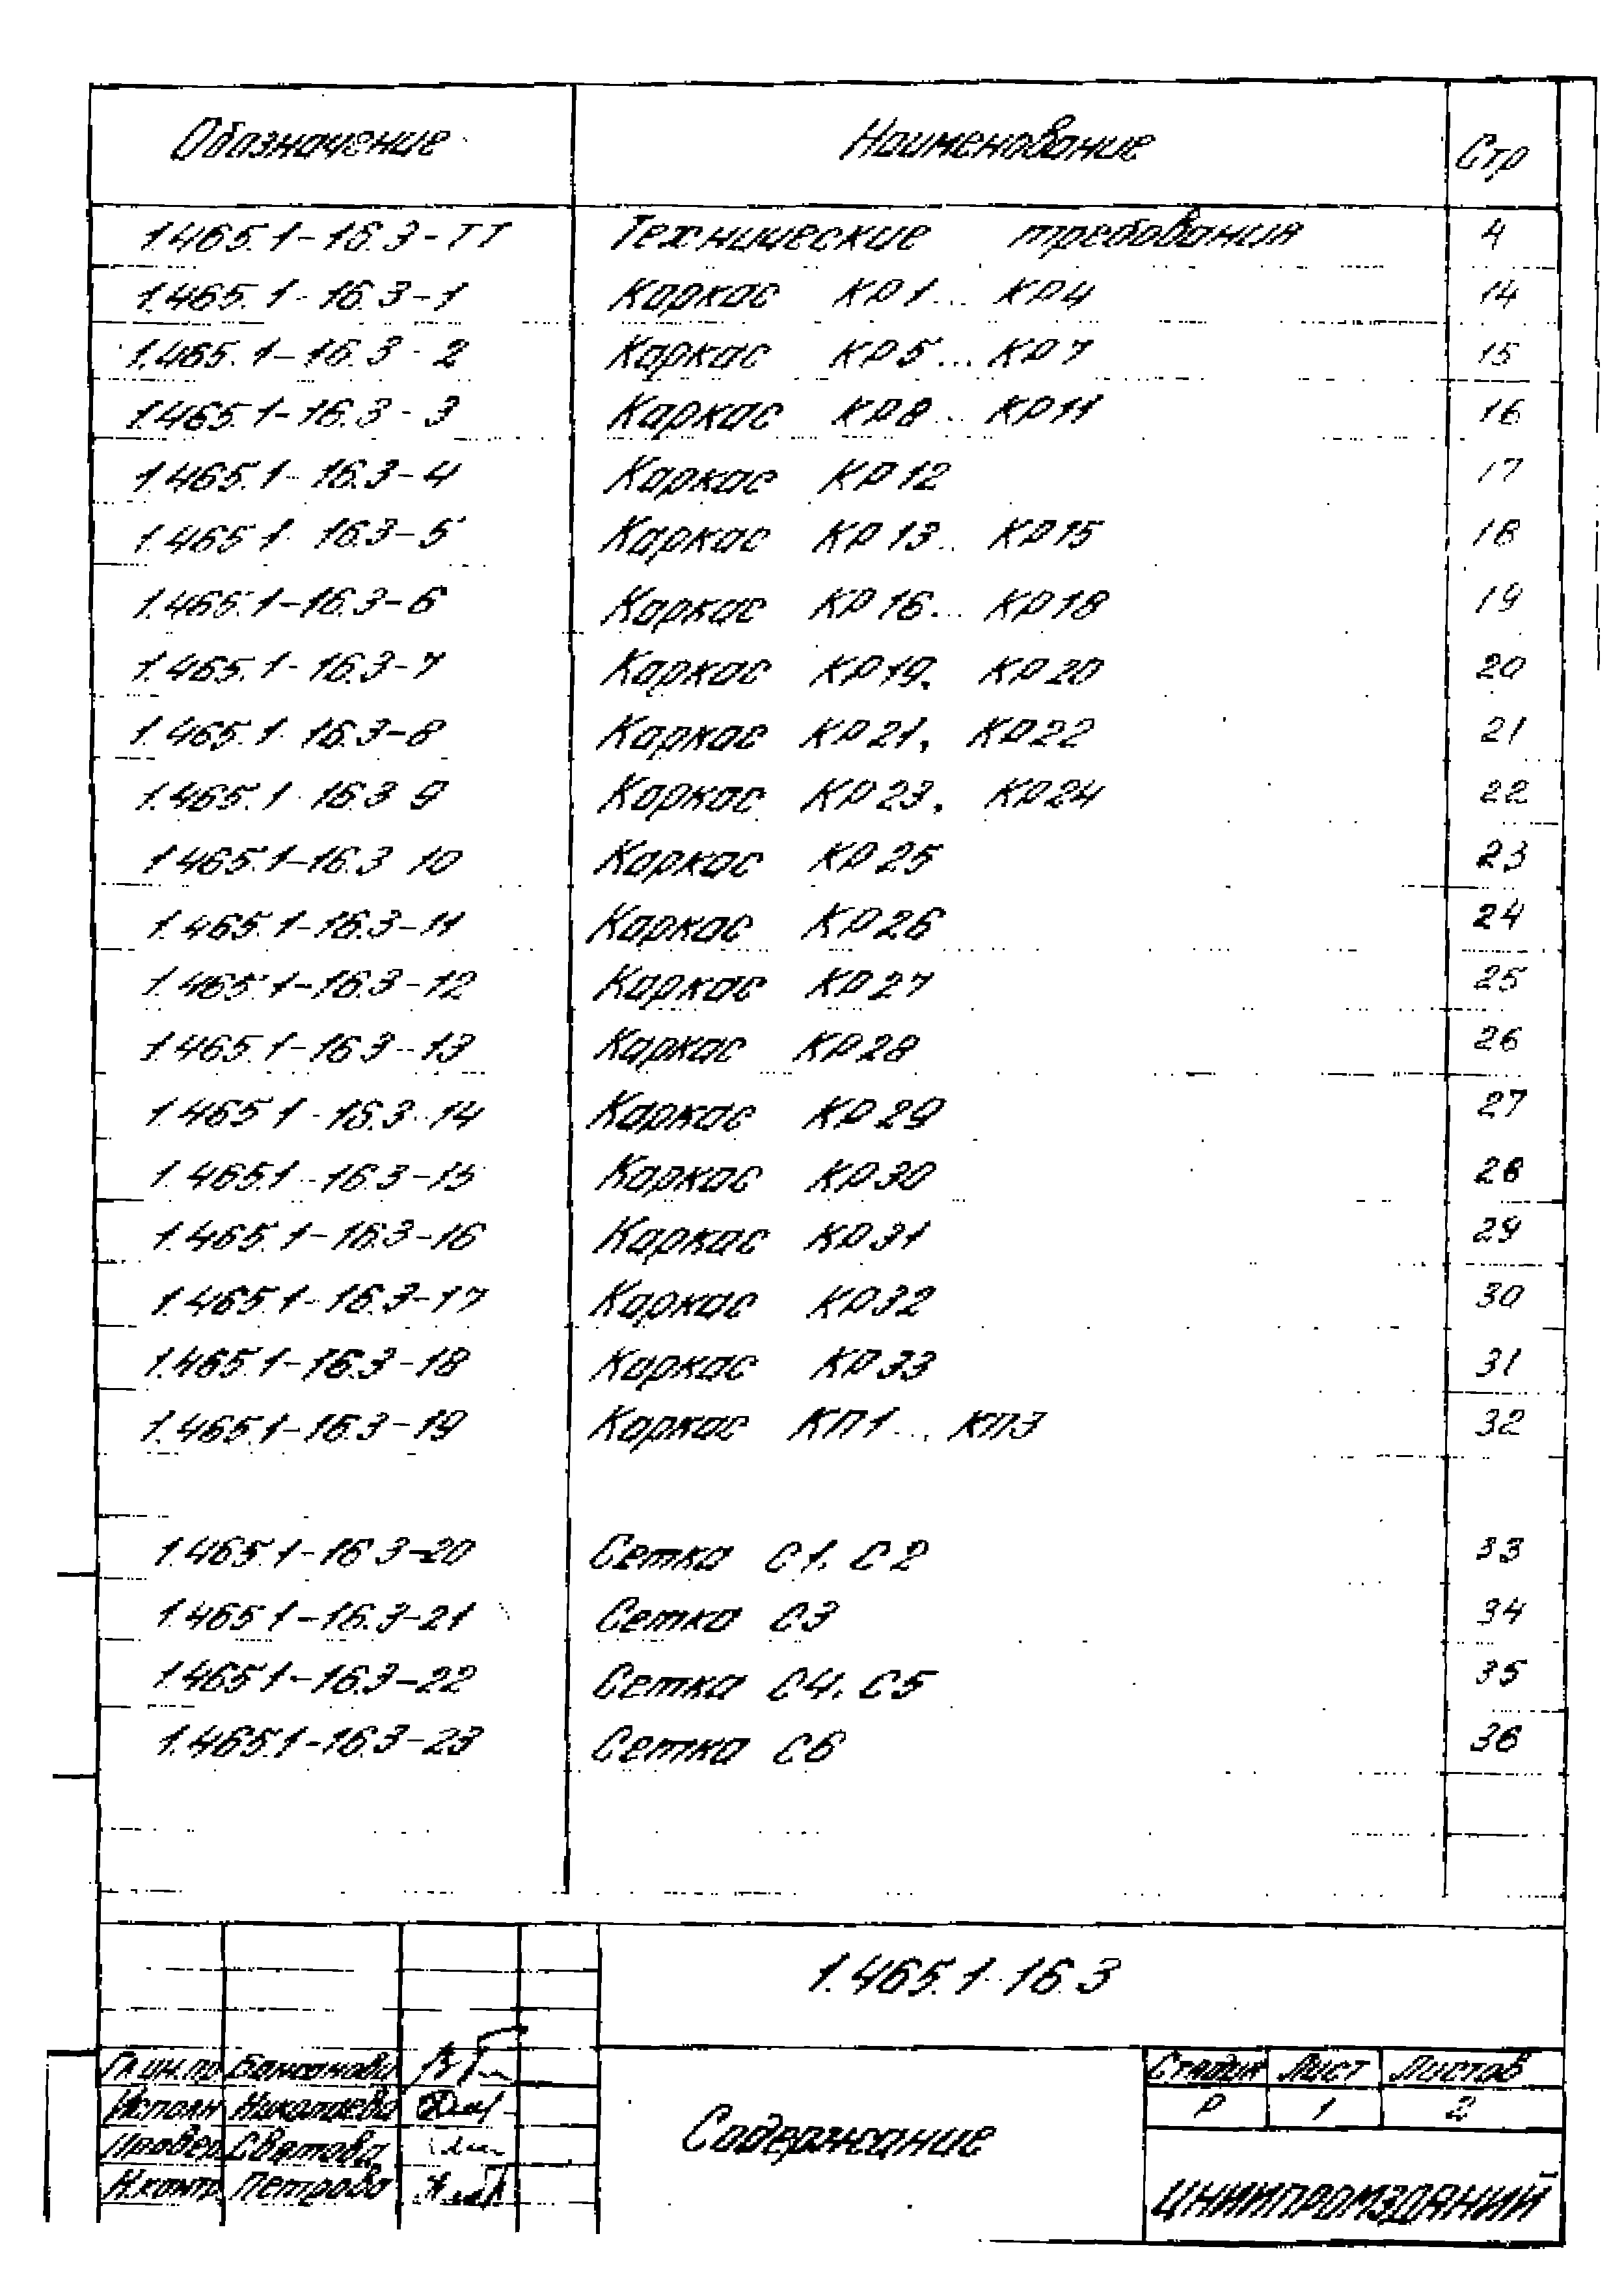 Обозначение Наименование Стр
1.465.1-16.3-ТТ Технические требования 4
1.465.1-16.3-1 Каркас КР1... КР4 14
1.465.1-16.3-2 Каркас КР5... КР7 15
1.465.1-16.3-3 Каркас КР8... КР11 16
1.465.1-16.3-4 Каркас КР12 17
1.465.1-16.3-5 Каркас КР13... КР15 18
1.465.1-16.3-6 Каркас КР16... КР18 19
1.465.1-16.3-7 Каркас КР19, КР20 20
1.465.1-16.3-8 Каркас КР21, КР22 21
1.465.1-16.3-9 Каркас КР23, КР24 22
1.465.1-16.3-10 Каркас КР25 23
1.465.1-16.3-11 Каркас КР26 24
1.465.1-16.3-12 Каркас КР27 25
1.465.1-16.3-13 Каркас КР28 26
1.465.1-16.3-14 Каркас КР29 27
1.465.1-16.3-15 Каркас КР30 28
1.465.1-16.3-16 Каркас КР31 29
1.465.1-16.3-17 Каркас КР32 30
1.465.1-16.3-18 Каркас КР33 31
1.465.1-16.3-19 Каркас КП1... КП3 32
1.465.1-16.3-20 Сетка С1, С2 33
1.465.1-16.3-21 Сетка С3 34
1.465.1-16.3-22 Сетка С4, С5 35
1.465.1-16.3-23 Сетка С6 36
1.465.1-16.3
Гл.ин.пр
Исполн Николаева
Провер Святова
Н.контр Петрова
Содержание
Стадия Лист Листов
Р 1 2
ЦНИИПРОМЗДАНИЙ